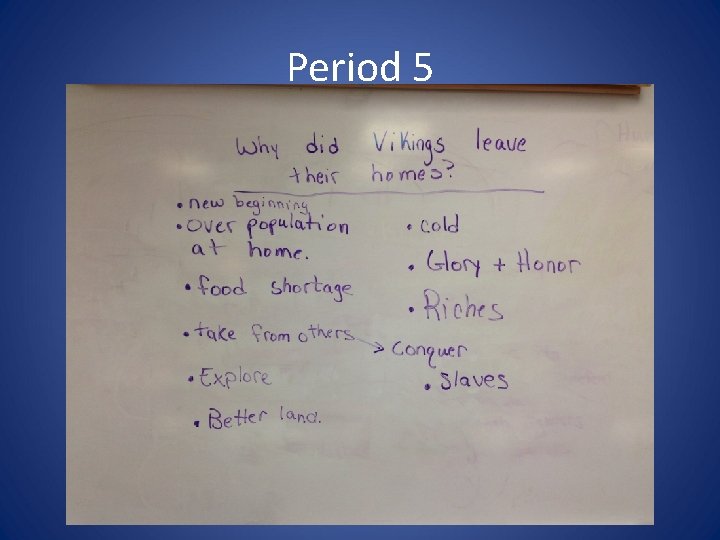 Period 5
Why did Vikings leave
their homes?
• new beginning
• over population
at home.
• food shortage
• take from others → Conquer
• Explore
• Better land.
• cold
• Glory + Honor
• Riches
• Slaves